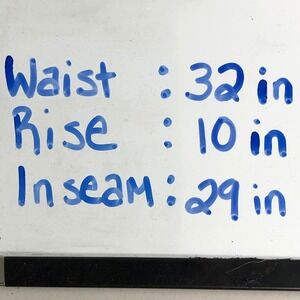 Waist : 32 in
Rise : 10 in
Inseam : 29 in